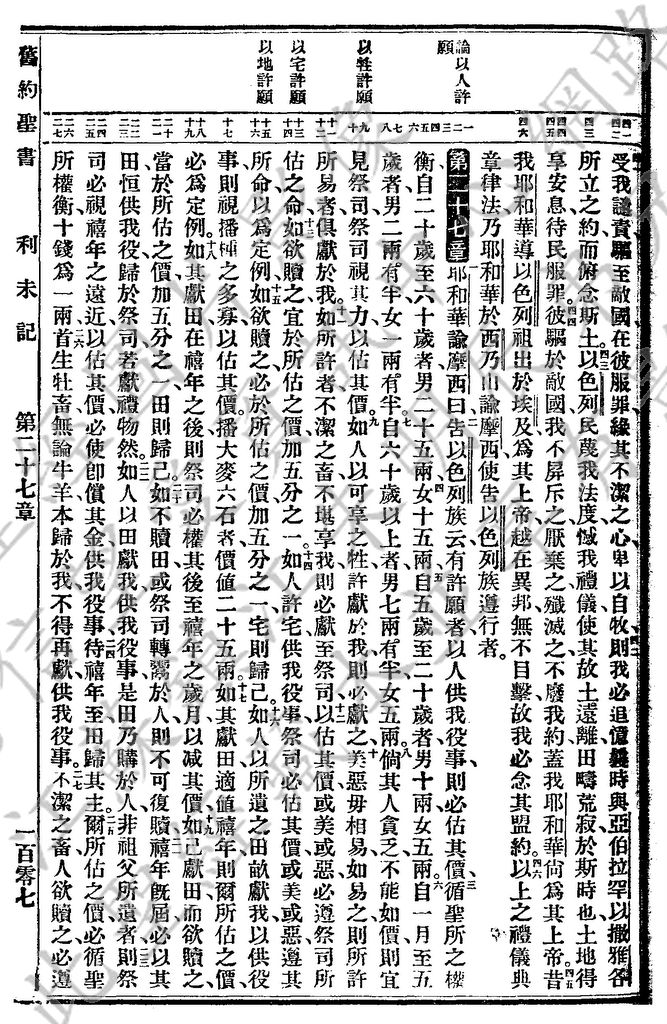 舊約聖書 利未記 第二十七章 一百零七
論以人許願
以牲許願
以宅許願
以地許願
受我譴責驅至敵國在彼服罪緣其不潔之心卑以自牧則我必追憶曩時與亞伯拉罕以撒雅各
所立之約而俯念斯土以色列民蔑我法度慽我禮儀使其故土遠離田疇荒寂於斯時也土地得
享安息待民服罪彼驅於敵國我不屏斥之厭棄之殲滅之不廢我約蓋我耶和華尚爲其上帝昔
我耶和華導以色列祖出於埃及爲其上帝越在異邦無不目擊故我必念其盟約以上之禮儀典
章律法乃耶和華於西乃山諭摩西使告以色列族遵行者
第二十七章 耶和華諭摩西曰告以色列族云有許願者以人供我役事則必估其價循聖所之權
衡自二十歲至六十歲者男二十五兩女十五兩自五歲至二十歲者男十兩女五兩自一月至五
歲者男二兩有半女一兩有半自六十歲以上者男七兩有半女五兩倘其人貧乏不能如價則宜
見祭司祭司視其力以估其價如人以可享之牲許獻於我則必獻之美惡毋相易如易之則所許
所易者俱獻於我如所許者不潔之畜不堪享我則必獻至祭司以估其價或美或惡必遵祭司所
估之命如欲贖之宜於所估之價加五分之一如人許宅供我役事祭司必估其價或美或惡遵其
所命以爲定例如欲贖之必於所估之價加五分之一宅則歸己如人以所遺之田畝獻我以供役
事則視播種之多寡以估其價播大麥六石者價値二十五兩如其獻田適値禧年則爾所估之價
必爲定例如其獻田在禧年之後則祭司必權其後至禧年之歲月以减其價如已獻田而欲贖之
當於所估之價加五分之一田則歸己如不贖田或祭司轉鬻於人則不可復贖禧年旣屆必以其
田恒供我役歸於祭司若獻禮物然如人以田獻我供我役事是田乃購於人非祖父所遺者則祭
司必視禧年之遠近以估其價必使卽償其金供我役事待禧年至田歸其主爾所估之價必循聖
所權衡十錢爲一兩首生牡畜無論牛羊本歸於我不得再獻供我役事不潔之畜人欲贖之必遵